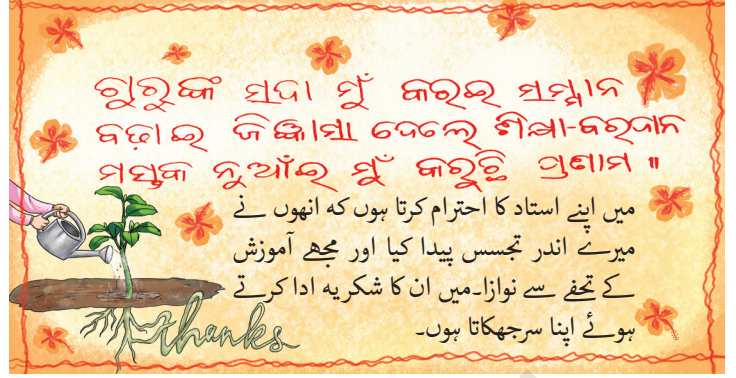 ଗୁରୁଙ୍କ ସଦା ମୁଁ କରଇ ସମ୍ମାନ
ବଢ଼ାଇ ଜିଜ୍ଞାସା ଦେଲେ ଶିକ୍ଷା-ବରଦାନ
ମସ୍ତକ ନୁଆଁଇ ମୁଁ କରୁଛି ପ୍ରଣାମ ॥
میں اپنے استاد کا احترام کرتا ہوں کہ انھوں نے
میرے اندر تجسس پیدا کیا اور مجھے آموزش
کے تحفے سے نوازا۔ میں ان کا شکریہ ادا کرتے
ہوئے اپنا سر جھکاتا ہوں۔
thanks